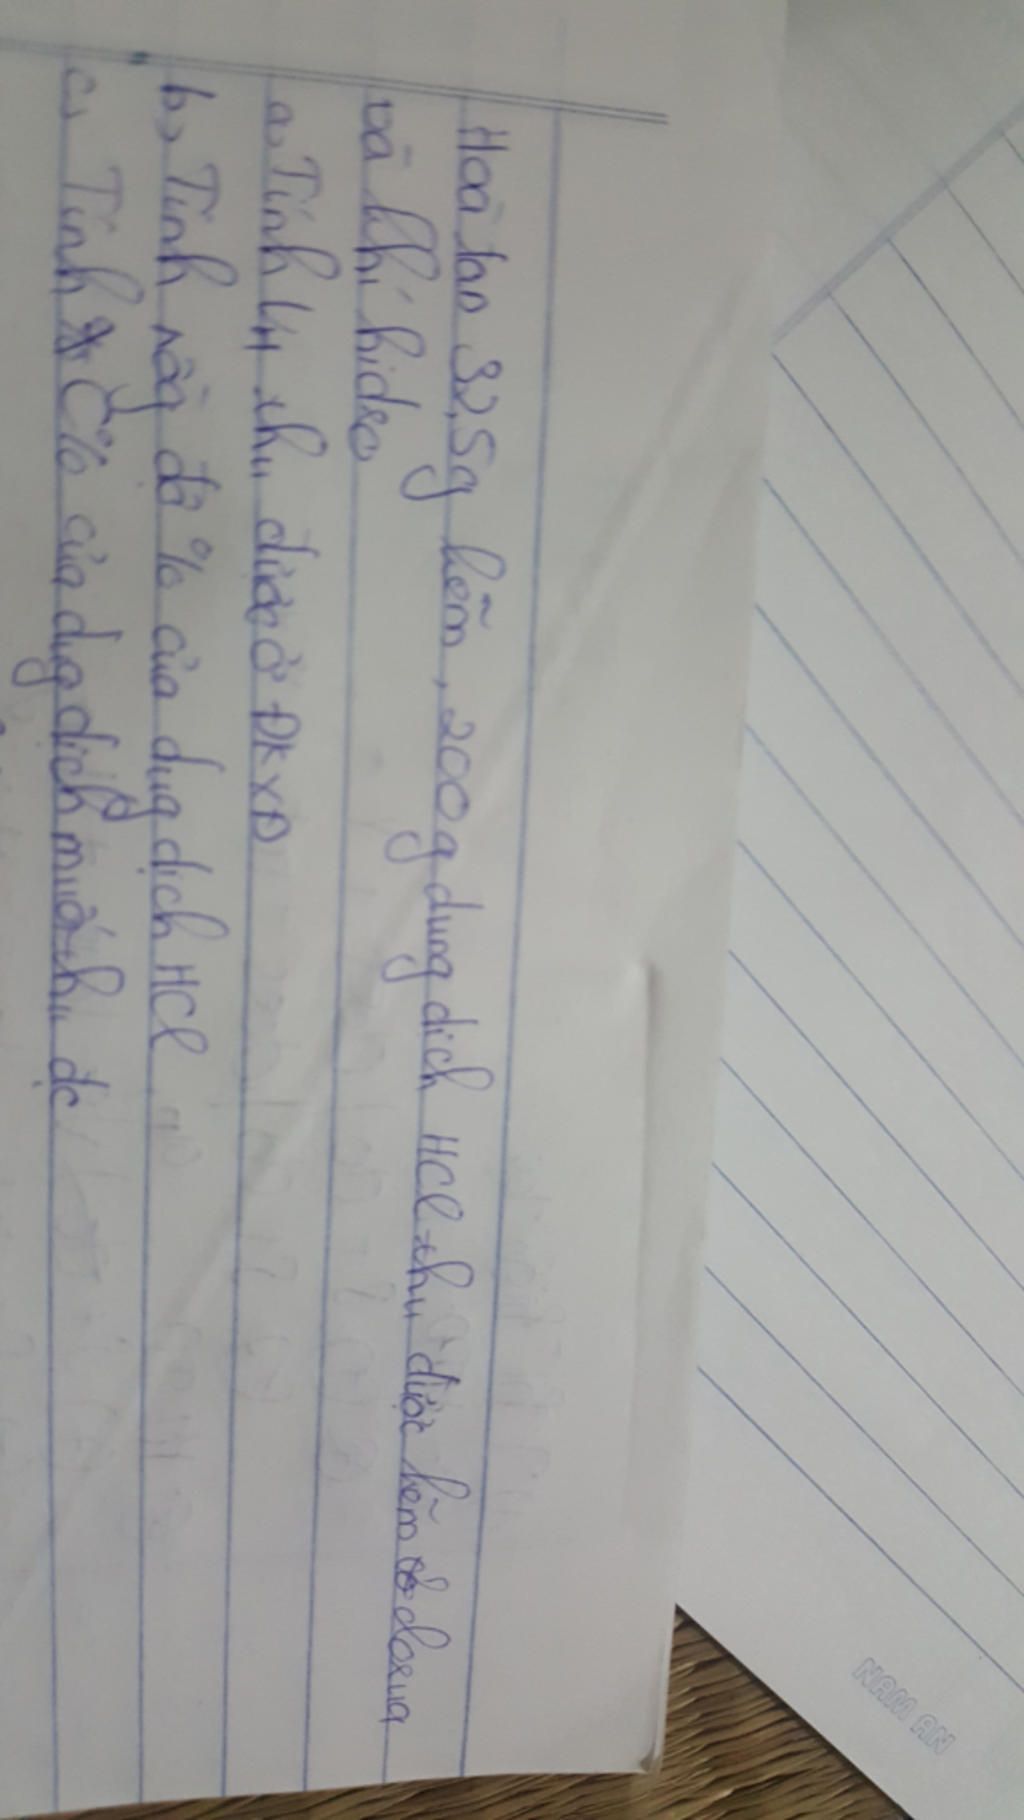 Hoà tan 32,5g kẽm, 200g dung dịch HCl thu được kẽm clorua
và khí hidro
a, Tính V H thu được ở ĐKXĐ
b, Tính nồg độ % của dug dịch HCl
c, Tính C% của dug dịch muối thu đc
NAM AN